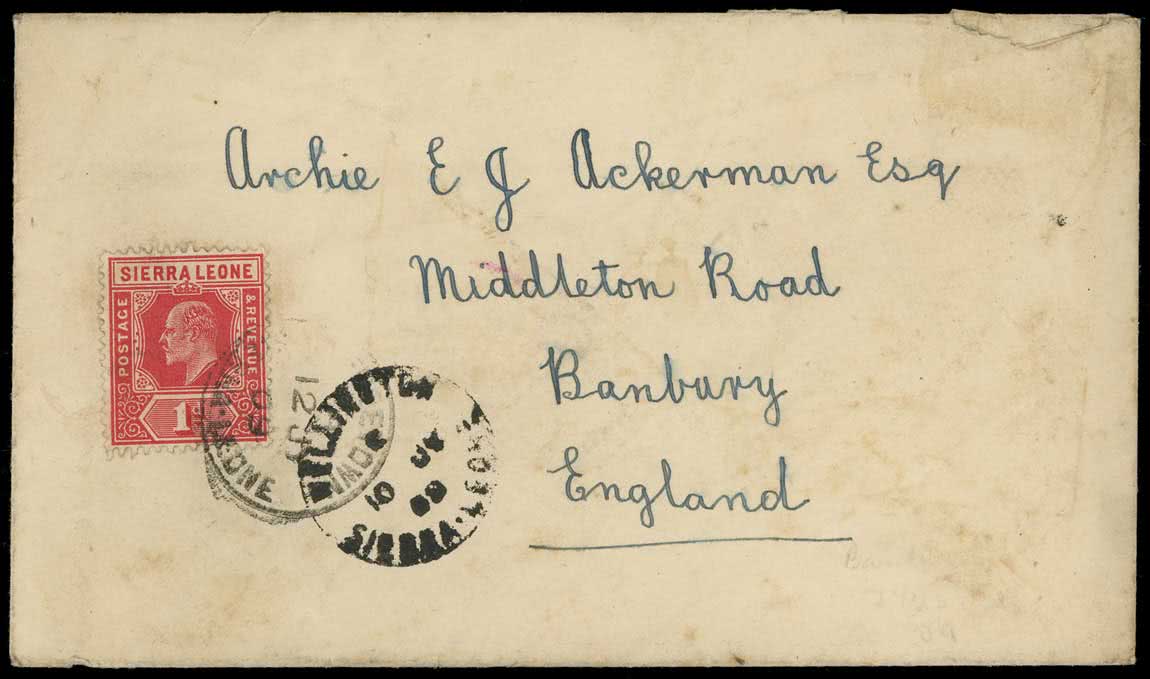 Archie E J Ackerman Esq
Middleton Road
Banbury
England
SIERRA LEONE
POSTAGE
& REVENUE
1D
WELLINGTON
SIERRA LEONE
10
09